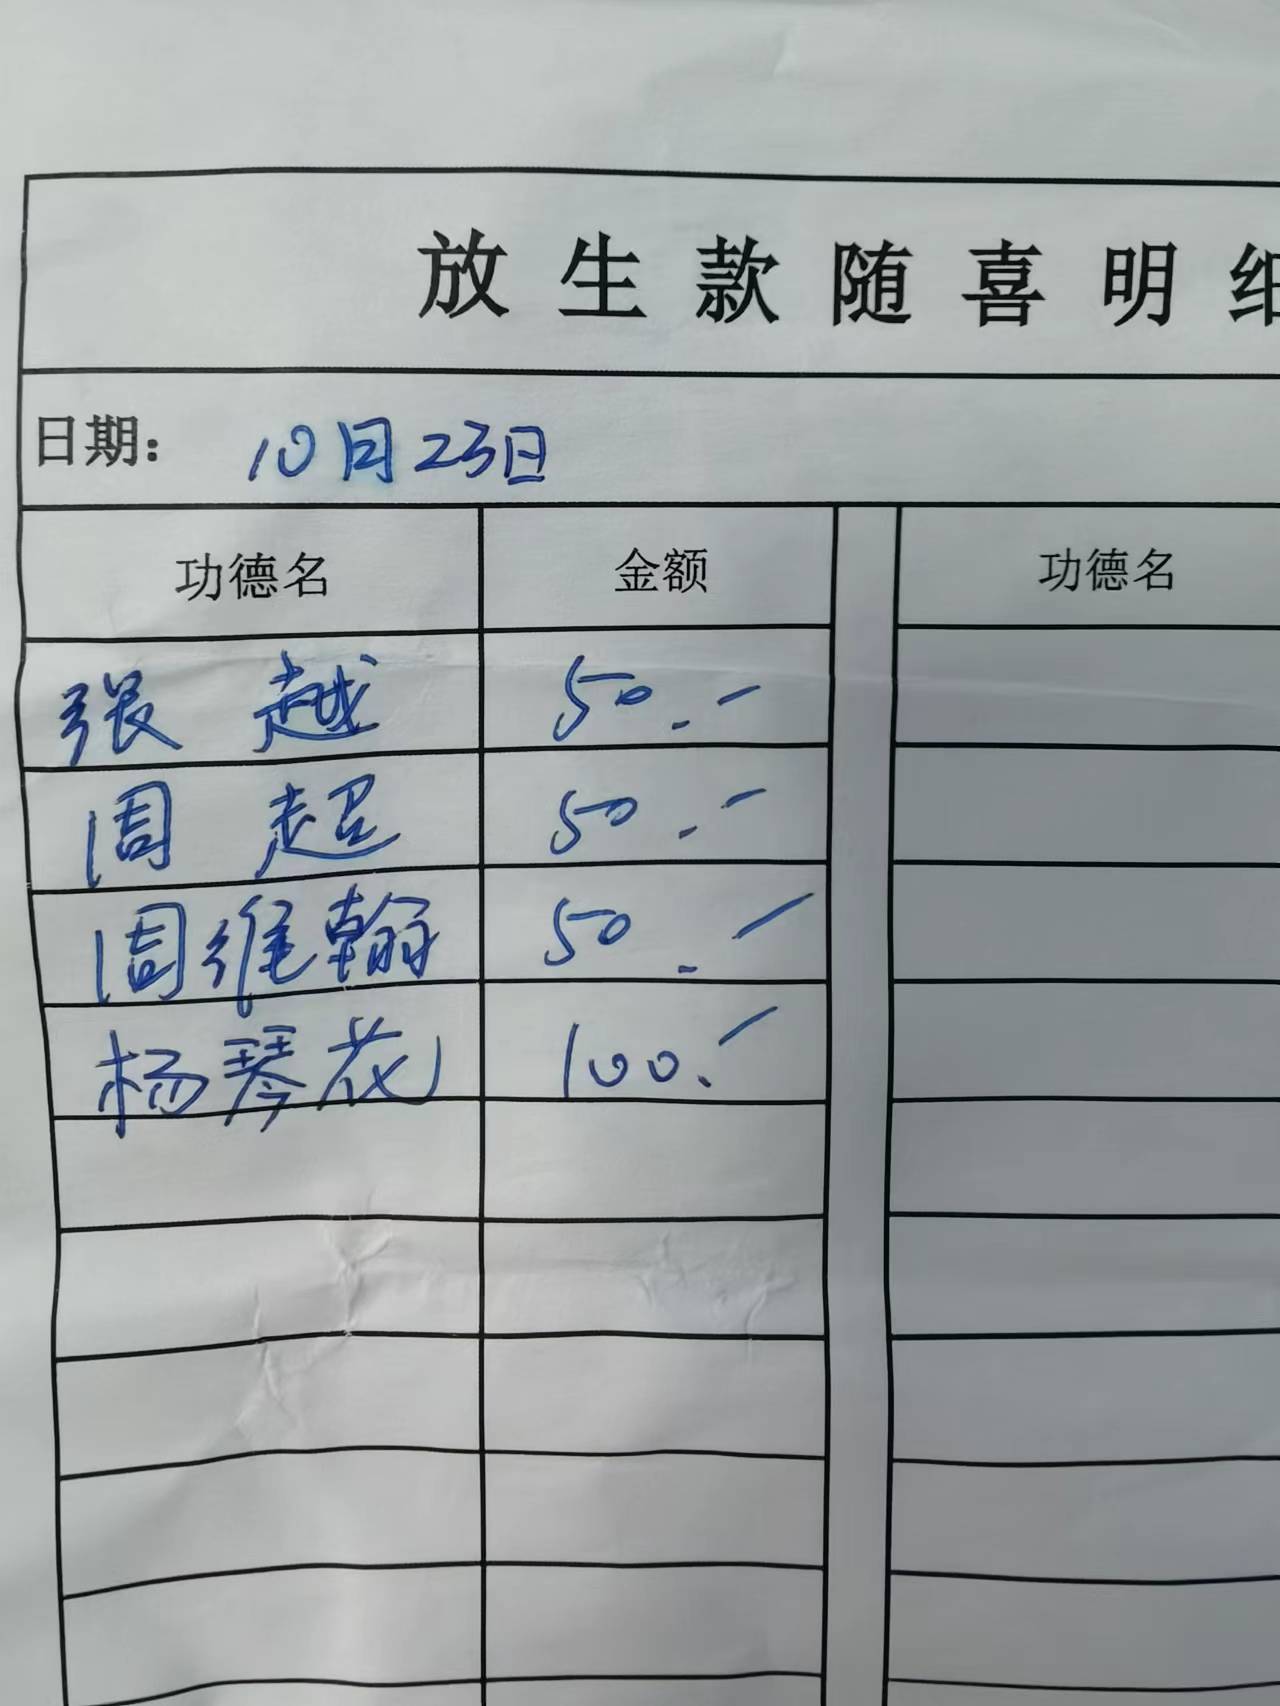 放生款随喜明细
日期: 10月23日
功德名 金额 功德名
张越 50.-
周超 50.-
周维翰 50.-
杨琴花 100.-